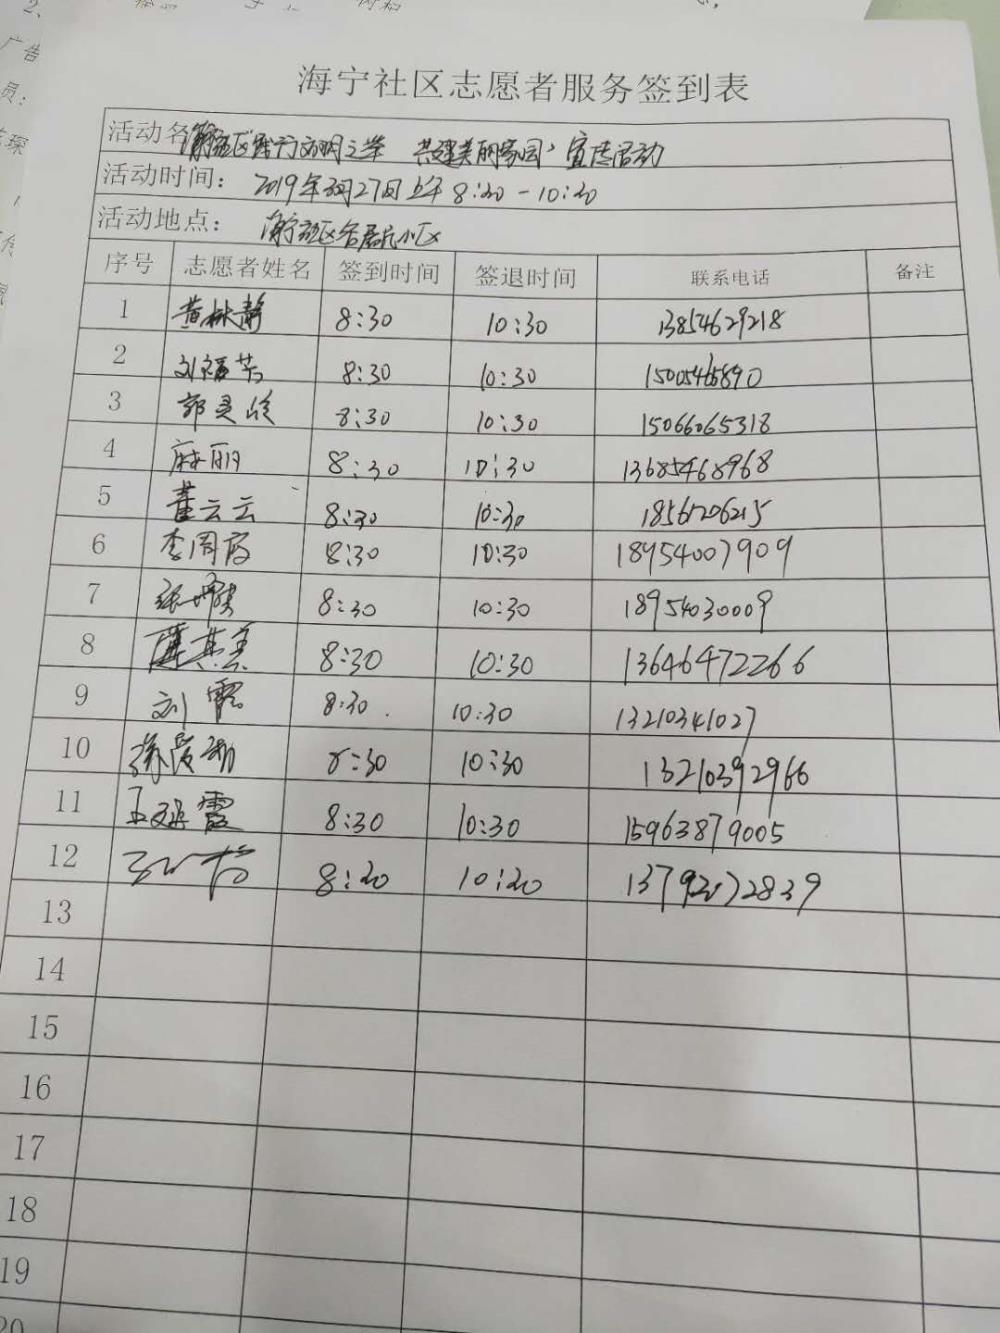 海宁社区志愿者服务签到表
活动名 海宁社区践行文明之举 共建美丽家园，宣传活动
活动时间： 2019年3月27日上午8:30-10:30
活动地点： 海宁社区各居民小区
序号 志愿者姓名 签到时间 签退时间 联系电话 备注
1 黄林静 8:30 10:30 13854629218
2 刘福芳 8:30 10:30 15005465890
3 郭灵 8:30 10:30 15066065318
4 麻丽 8:30 10:30 13685468968
5 董云云 8:30 10:30
6 李周霞 8:30 10:30 18954007909
7 张 8:30 10:30 18954030009
8 薄其美 8:30 10:30 13646472266
9 刘霞 8:30 10:30 13210341027
10 8:30 10:30 13210392966
11 王 霞 8:30 10:30 15963879005
12 8:30 10:30 13792072839
13
14
15
16
17
18
19
20